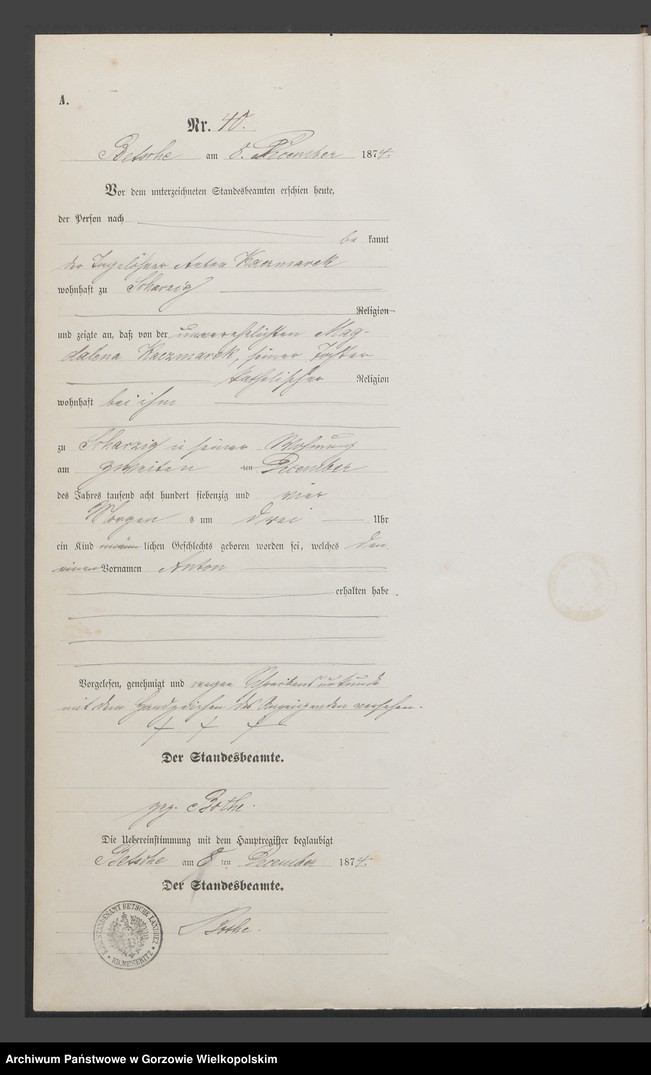 A.
Nr. 40.
Betsche am 8. December 1874.
Vor dem unterzeichneten Standesbeamten erschien heute,
der Person nach
be kannt
der Tagelöhner Anton Kaczmarek
wohnhaft zu Scharzig
Religion
und zeigte an, daß von der unverehelichten Mag-
dalena Kaczmarek, seiner Tochter
katholischer Religion
wohnhaft bei ihm
zu Scharzig in seiner Wohnung
am zweiten December
des Jahres tausend acht hundert siebenzig und vier
Morgen s um drei Uhr
ein Kind männ lichen Geschlechts geboren worden sei, welches den
einen Vornamen Anton
erhalten habe.
Vorgelesen, genehmigt und wegen
mit dem Handzeichen des Anzeigenden versehen.
+ + +
Der Standesbeamte.
gez. Bothe.
Die Uebereinstimmung mit dem Hauptregister beglaubigt
Betsche am 8 ten December 1874.
Der Standesbeamte.
Bothe.
STANDESAMT BETSCHE
KR. MESERITZ
Archiwum Państwowe w Gorzowie Wielkopolskim